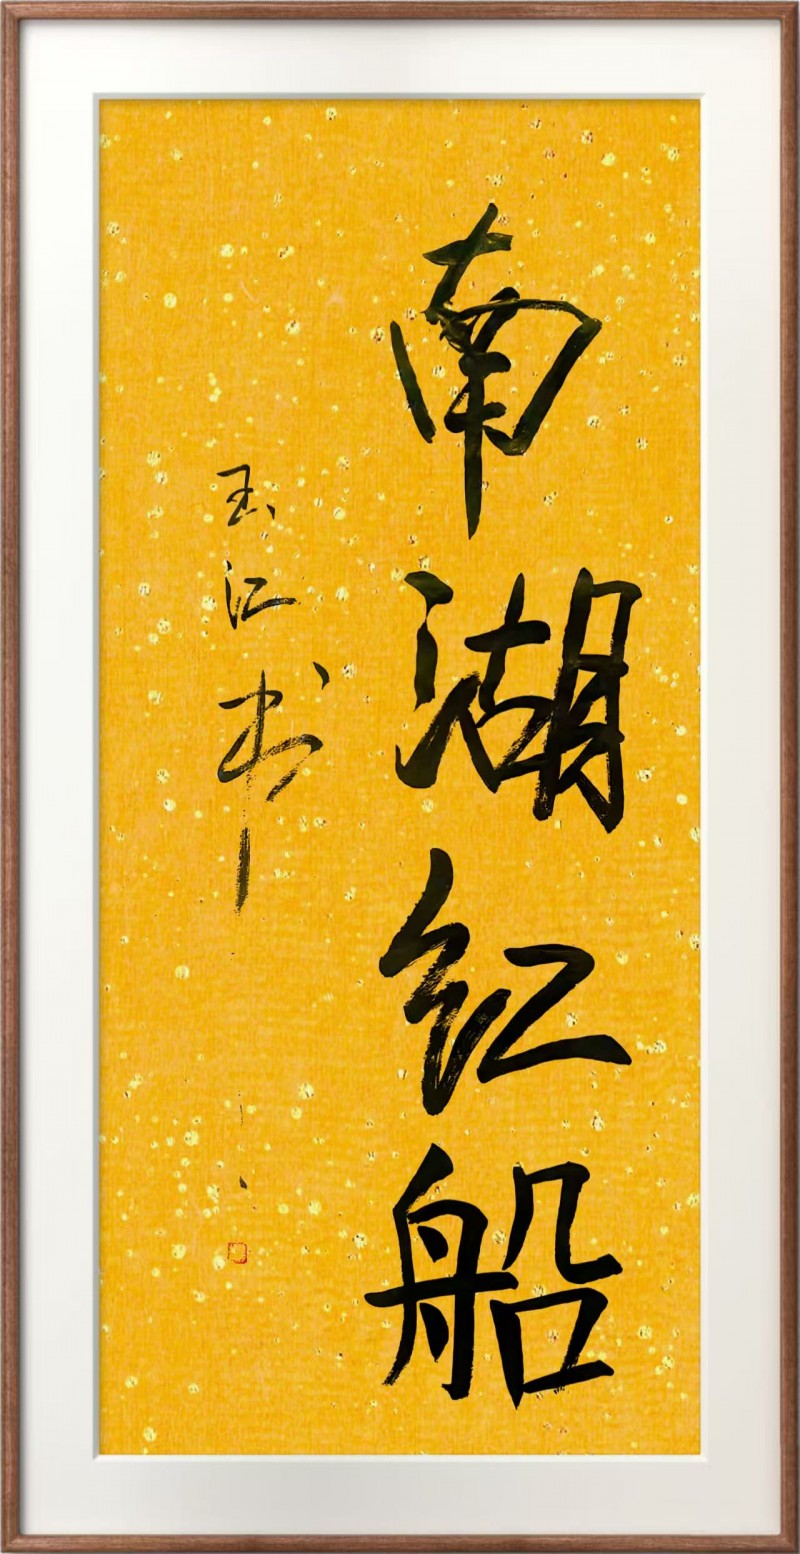 南湖红船
玉江书